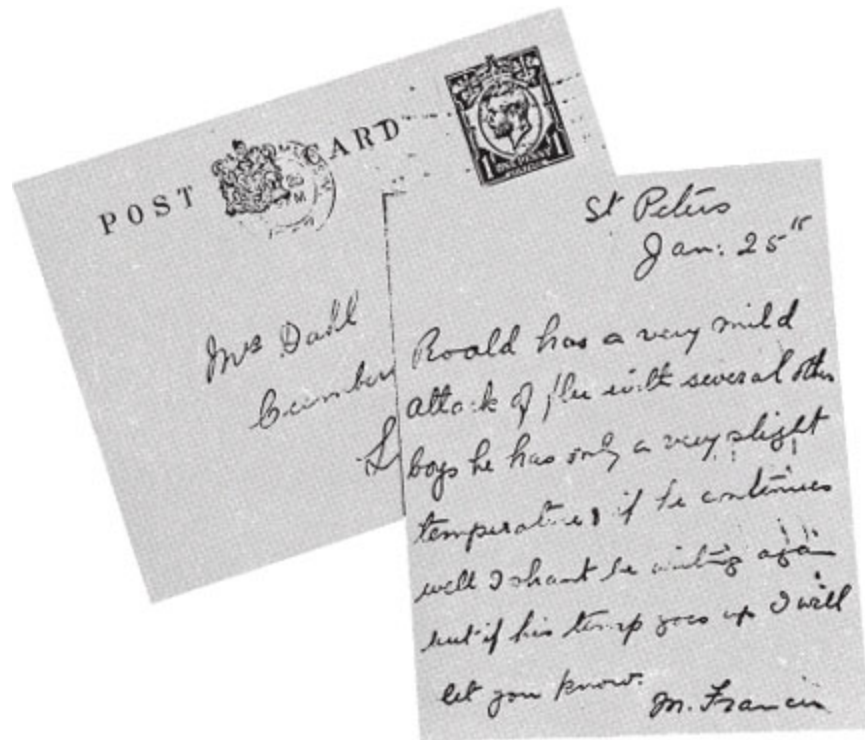 POST CARD
1 ONE PENNY 1
Mrs Dahl
Cumber
St Peters
Jan: 25th
Roald has a very mild
attack of flu with several other
boys he has only a very slight
temperature, if he continues
well I shant be writing again
but if his temp goes up I will
let you know.
M. Francis